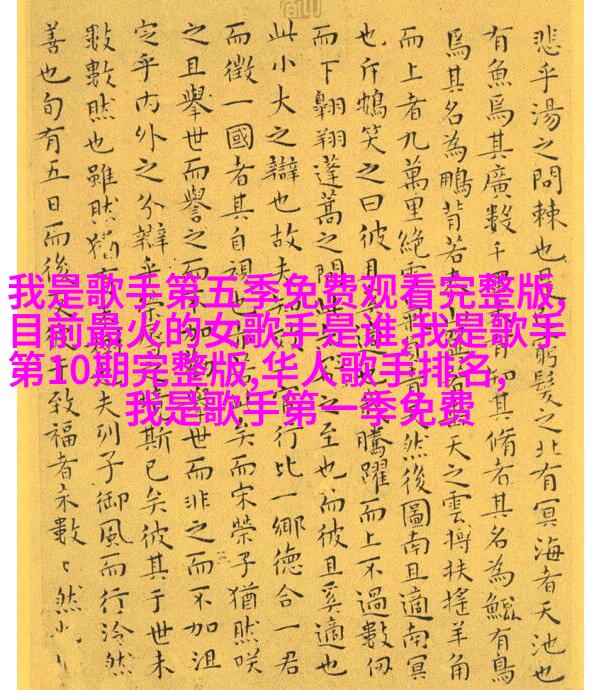 我是歌手第五季免费观看完整版,
目前最火的女歌手是谁,我是歌手
第10期完整版,华人歌手排名,
我是歌手第一季免费
悲乎湯之問棘也是窮髮之北有冥海者天池也
有魚焉其廣數千知其脩者其名為鯤有鳥
焉其名為鵬背若泰山天之雲摶扶搖羊角
而上者九萬里絕雲然後圖南且適南冥
也斥鴳笑之曰彼且騰躍而上不過數仞
而下翱翔蓬蒿之間之至也而彼且奚適也
此小大之辯也故夫行比一鄉德合一君
而徵一國者其自視矣而宋榮子猶然咲
之且舉世而譽之而不加而非之而不加沮
定乎內外之分辯乎斯已矣彼其于世未
數數然也雖然猶有夫列子御風而行泠然
善也旬有五日而後于致福者未數〻然也